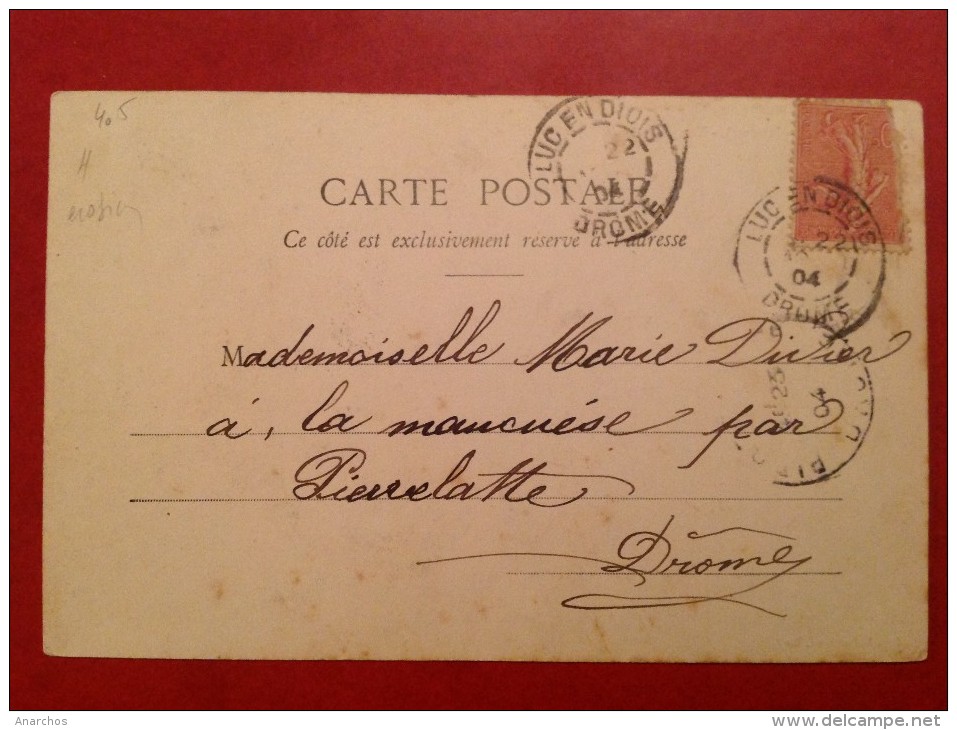 4.5
H
LUC EN DIOIS
22
04
DROME
CARTE POSTALE
Ce côté est exclusivement réservé à l'adresse
LUC EN DIOIS
22
04
DROME
Mademoiselle Marie Divier
23
04
à, la maucuése par
Pierrelatte
Drôme
Anarchos
www.delcampe.net